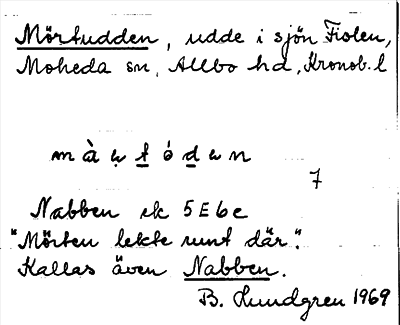 Mörtudden, udde i sjön Fiolen,
Moheda sn, Allbo hd, Kronob. l
7
Nabben ek 5E6c
"Mörten lekte runt där".
Kallas även Nabben.
B. Lundgren 1969